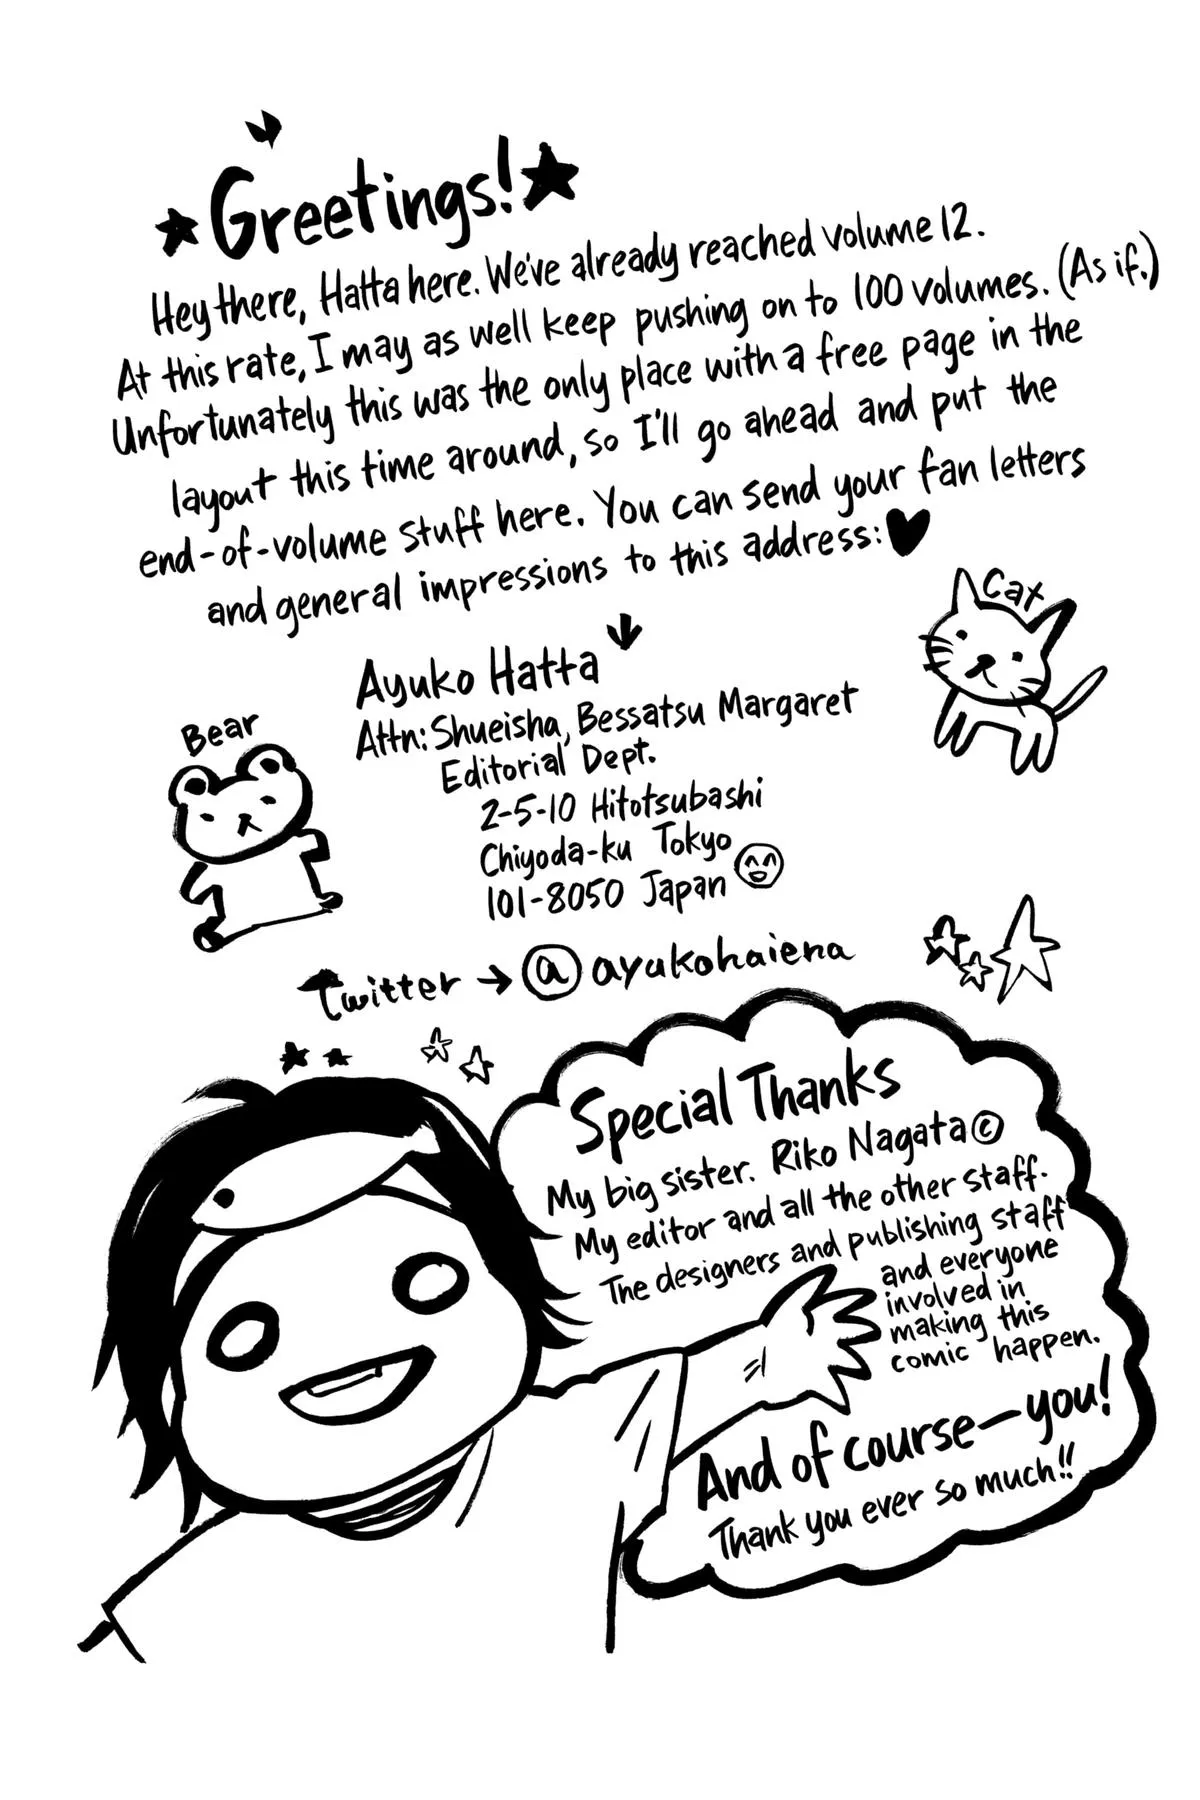 ★Greetings!★
Hey there, Hatta here. We've already reached volume 12.
At this rate, I may as well keep pushing on to 100 volumes. (As if.)
Unfortunately this was the only place with a free page in the
layout this time around, so I'll go ahead and put the
end-of-volume stuff here. You can send your fan letters
and general impressions to this address:♥
Cat
Ayuko Hatta
Attn: Shueisha, Bessatsu Margaret
Editorial Dept.
2-5-10 Hitotsubashi
Chiyoda-ku Tokyo
101-8050 Japan
Bear
Twitter → @ayukohaiena
Special Thanks
My big sister. Riko Nagata©
My editor and all the other staff.
The designers and publishing staff
and everyone
involved in
making this
comic happen.
And of course—you!
Thank you ever so much!!